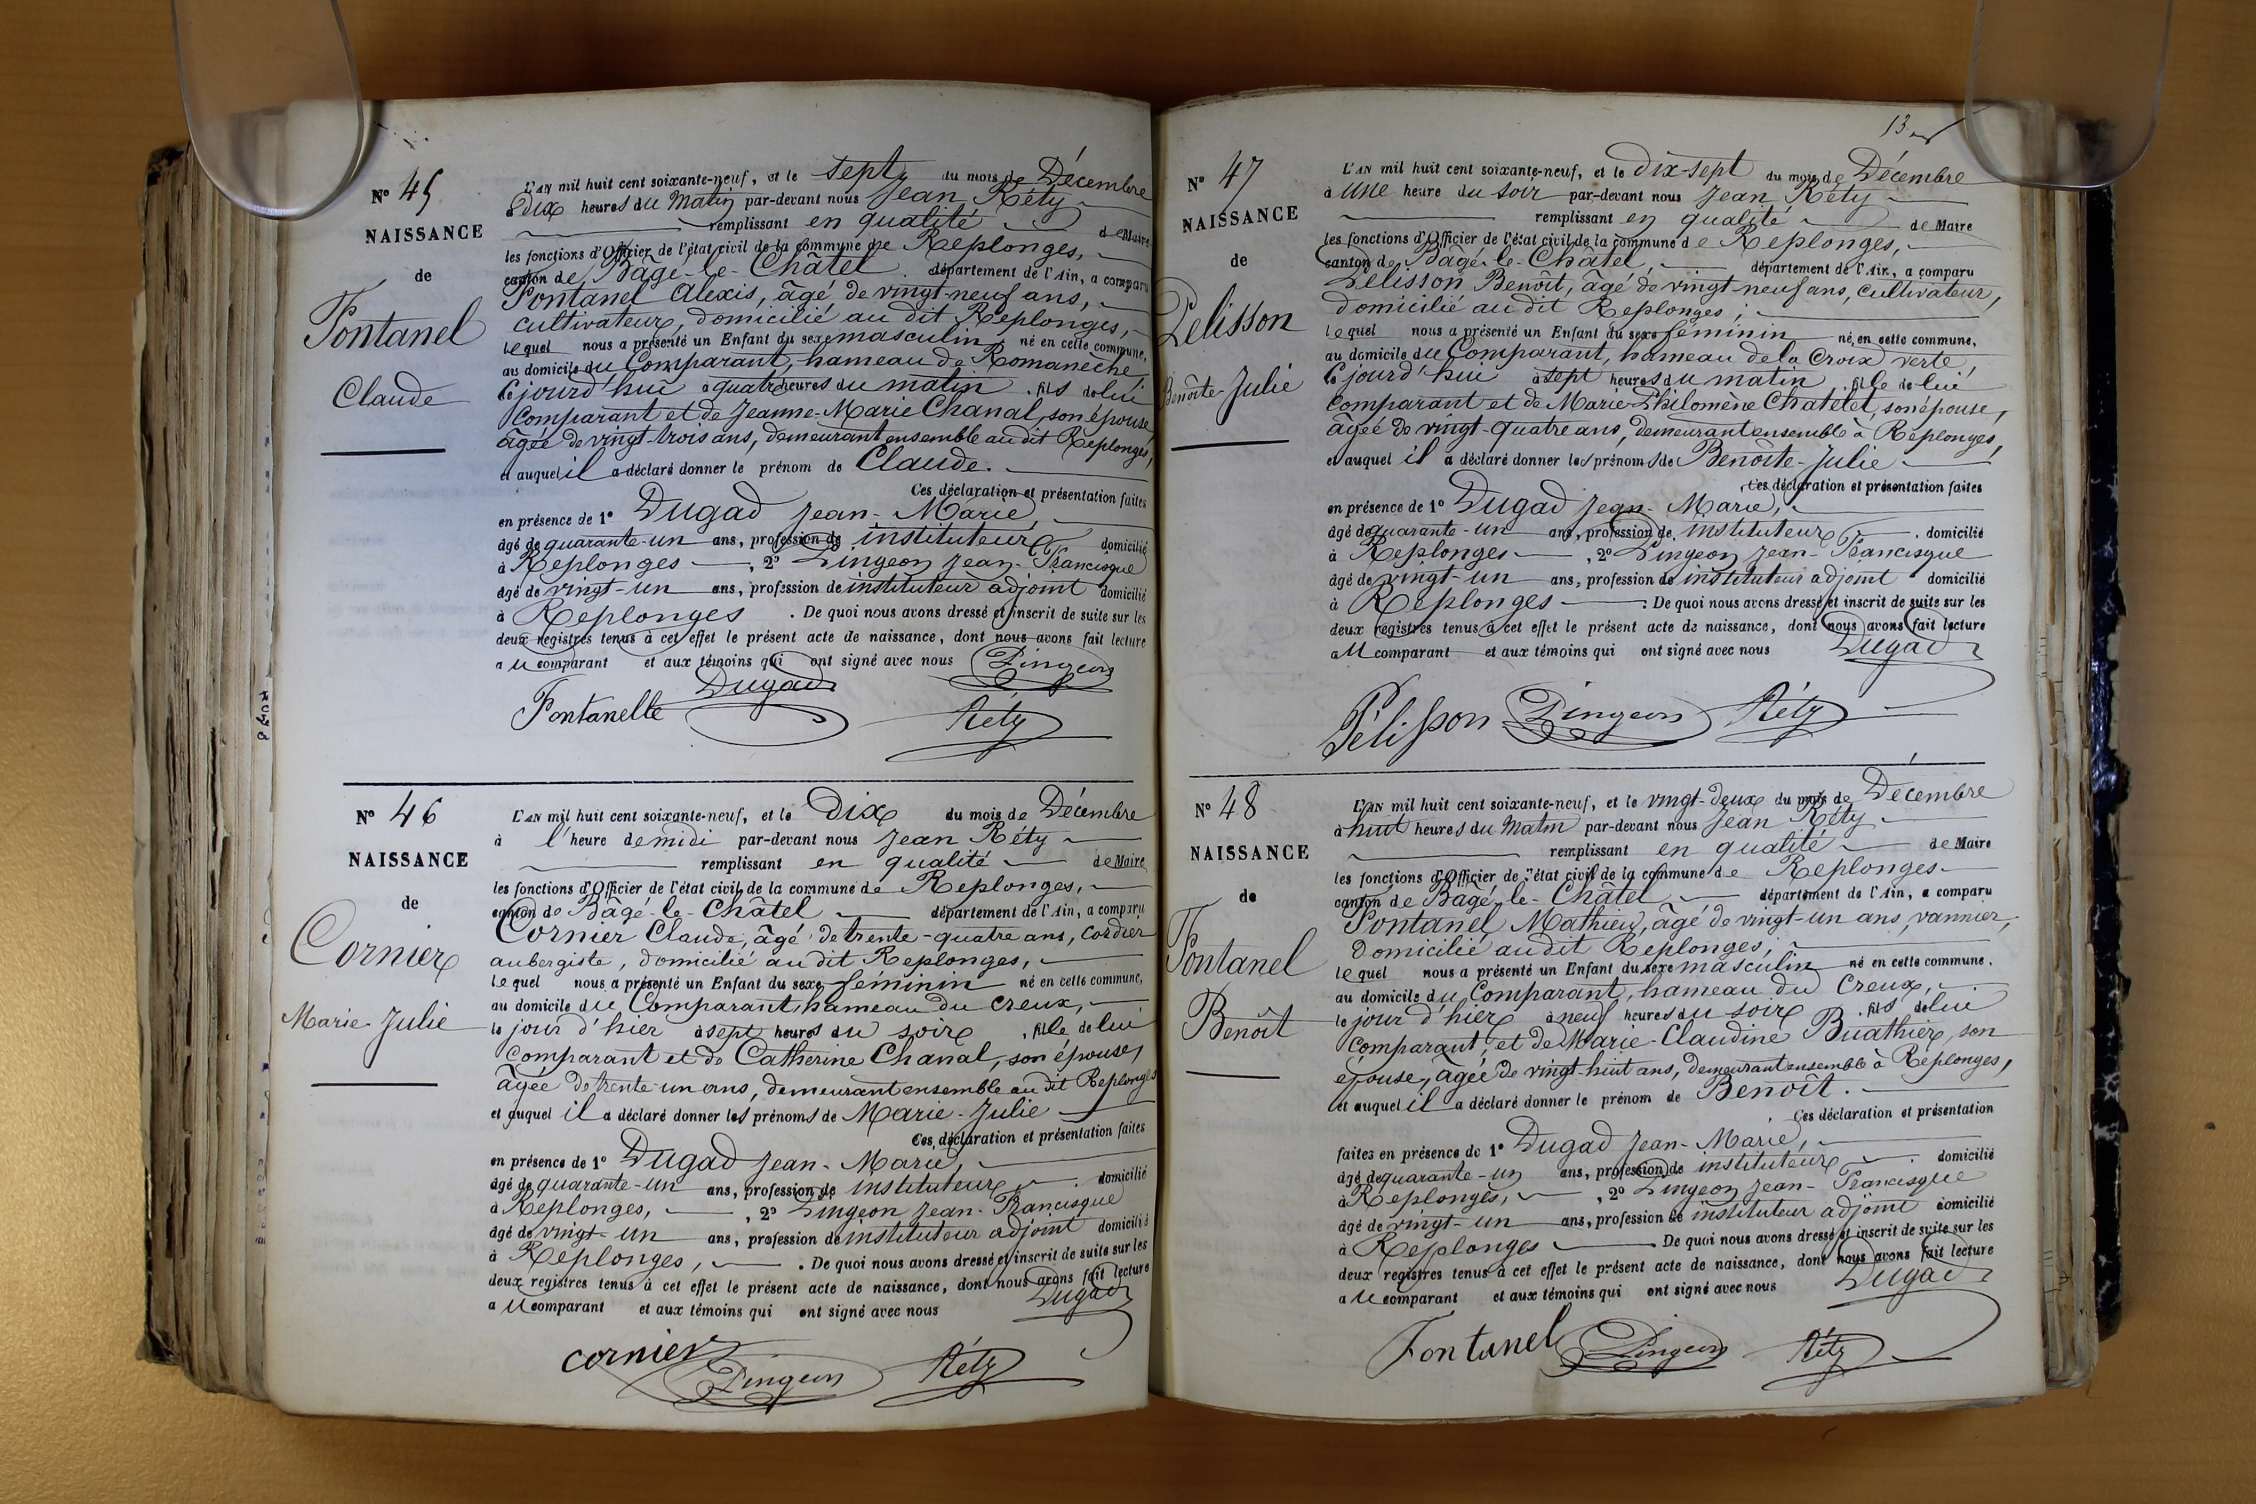 Nº 45
NAISSANCE
de
Fontanel
Claude
L'AN mil huit cent soixante-neuf, et le sept du mois de Décembre
à dix heures du matin par-devant nous Jean Réty
remplissant en qualité de Maire
les fonctions d'Officier de l'état civil de la commune de Replonges,
canton de Bâgé-le-Châtel département de l'Ain, a comparu
Fontanel Alexis, âgé de vingt-neuf ans,
cultivateur, domicilié au dit Replonges,
lequel nous a présenté un Enfant du sexe masculin né en cette commune,
au domicile du Comparant, hameau de Romanèche
cejourd'hui à quatre heures du matin, fils de lui
comparant et de Jeanne-Marie Chanal, son épouse
âgée de vingt-trois ans, demeurant ensemble au dit Replonges,
et auquel il a déclaré donner le prénom de Claude.
Ces déclaration et présentation faites
en présence de 1º Dugad Jean-Marie,
âgé de quarante-un ans, profession de instituteur domicilié
à Replonges, 2º Pingeon Jean-Francisque
âgé de vingt-un ans, profession de instituteur adjoint domicilié
à Replonges. De quoi nous avons dressé et inscrit de suite sur les
deux registres tenus à cet effet le présent acte de naissance, dont nous avons fait lecture
au comparant et aux témoins qui ont signé avec nous Pingeon
Dugad
Fontanelle Réty
Nº 46
NAISSANCE
de
Cornier
Marie-Julie
L'AN mil huit cent soixante-neuf, et le Dix du mois de Décembre
à l'heure de midi par-devant nous Jean Réty
remplissant en qualité de Maire
les fonctions d'Officier de l'état civil de la commune de Replonges,
canton de Bâgé-le-Châtel département de l'Ain, a comparu
Cornier Claude, âgé de trente-quatre ans, cordier
aubergiste, domicilié au dit Replonges,
lequel nous a présenté un Enfant du sexe féminin né en cette commune,
au domicile du Comparant, hameau du Creux,
le jour d'hier à sept heures du soir, fille de lui
comparant et de Catherine Chanal, son épouse,
âgée de trente-un ans, demeurant ensemble au dit Replonges
et auquel il a déclaré donner les prénoms de Marie-Julie
Ces déclaration et présentation faites
en présence de 1º Dugad Jean-Marie,
âgé de quarante-un ans, profession de instituteur domicilié
à Replonges, 2º Pingeon Jean-Francisque
âgé de vingt-un ans, profession de instituteur adjoint domicilié
à Replonges, . De quoi nous avons dressé et inscrit de suite sur les
deux registres tenus à cet effet le présent acte de naissance, dont nous avons fait lecture
au comparant et aux témoins qui ont signé avec nous Dugad
cornier Pingeon Réty
13
Nº 47
NAISSANCE
de
Pelisson
Benoîte-Julie
L'AN mil huit cent soixante-neuf, et le dix-sept du mois de Décembre
à une heure du soir par-devant nous Jean Réty
remplissant en qualité de Maire
les fonctions d'Officier de l'état civil de la commune de Replonges,
canton de Bâgé-le-Châtel, département de l'Ain, a comparu
Pelisson Benoît, âgé de vingt-neuf ans, cultivateur,
domicilié au dit Replonges;
lequel nous a présenté un Enfant du sexe féminin né en cette commune,
au domicile du Comparant, hameau de la Croix verte,
cejourd'hui à sept heures du matin, fille de lui
comparant et de Marie-Philomène Chatelet, son épouse,
âgée de vingt-quatre ans, demeurant ensemble à Replonges,
et auquel il a déclaré donner les prénoms de Benoîte-Julie
Ces déclaration et présentation faites
en présence de 1º Dugad Jean-Marie,
âgé de quarante-un ans, profession de instituteur domicilié
à Replonges, 2º Pingeon Jean-Francisque
âgé de vingt-un ans, profession de instituteur adjoint domicilié
à Replonges. De quoi nous avons dressé et inscrit de suite sur les
deux registres tenus à cet effet le présent acte de naissance, dont nous avons fait lecture
au comparant et aux témoins qui ont signé avec nous Dugad
Pélisson Pingeon Réty
Nº 48
NAISSANCE
de
Fontanel
Benoît
L'AN mil huit cent soixante-neuf, et le vingt-deux du mois de Décembre
à huit heures du matin par-devant nous Jean Réty
remplissant en qualité de Maire
les fonctions d'Officier de l'état civil de la commune de Replonges
canton de Bâgé-le-Châtel département de l'Ain, a comparu
Fontanel Mathieu, âgé de vingt-un ans, vannier,
domicilié au dit Replonges;
lequel nous a présenté un Enfant du sexe masculin né en cette commune.
au domicile du Comparant, hameau du Creux,
le jour d'hier à neuf heures du soir, fils de lui
comparant, et de Marie-Claudine Buathier, son
épouse, âgée de vingt-huit ans, demeurant ensemble à Replonges,
et auquel il a déclaré donner le prénom de Benoît.
Ces déclaration et présentation
faites en présence de 1º Dugad Jean-Marie,
âgé de quarante-un ans, profession de instituteur domicilié
à Replonges, 2º Pingeon Jean-Francisque
âgé de vingt-un ans, profession de instituteur adjoint domicilié
à Replonges. De quoi nous avons dressé et inscrit de suite sur les
deux registres tenus à cet effet le présent acte de naissance, dont nous avons fait lecture
au comparant et aux témoins qui ont signé avec nous Dugad
Fontanel Pingeon Réty